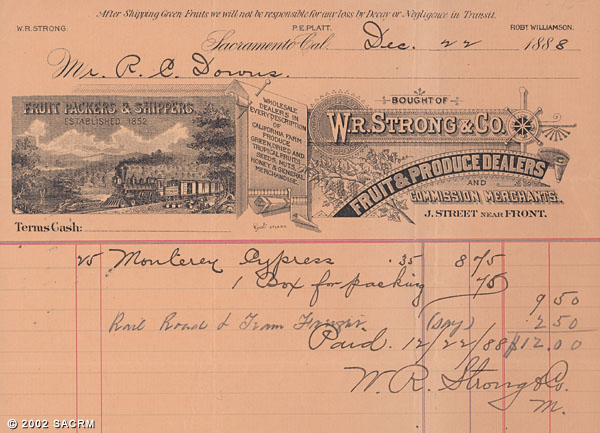 After Shipping Green Fruits we will not be responsible for any loss by Decay or Negligence in Transit.
W.R. STRONG. P.E. PLATT. ROBT. WILLIAMSON.
Sacramento Cal. Dec. 22 1888
Mr. R. C. Downs.
FRUIT PACKERS & SHIPPERS
ESTABLISHED 1852
WHOLESALE
DEALERS IN
EVERY DESCRIPTION
OF
CALIFORNIA FARM
PRODUCE
GREEN, DRIED AND
TROPICAL FRUITS
SEEDS, NUTS,
HONEY & GENERAL
MERCHANDISE.
BOUGHT OF
WR. STRONG & CO.
FRUIT & PRODUCE DEALERS
AND
COMMISSION MERCHANTS.
J. STREET NEAR FRONT.
Terms Cash:
25 Monterey Cypress .35 8 75
1 Box for packing 75
9 50
Rail Road & Tram (Spy) 2 50
Paid. 12/22/88 $12.00
W. R. Strong & Co.
M.
© 2002 SACRM